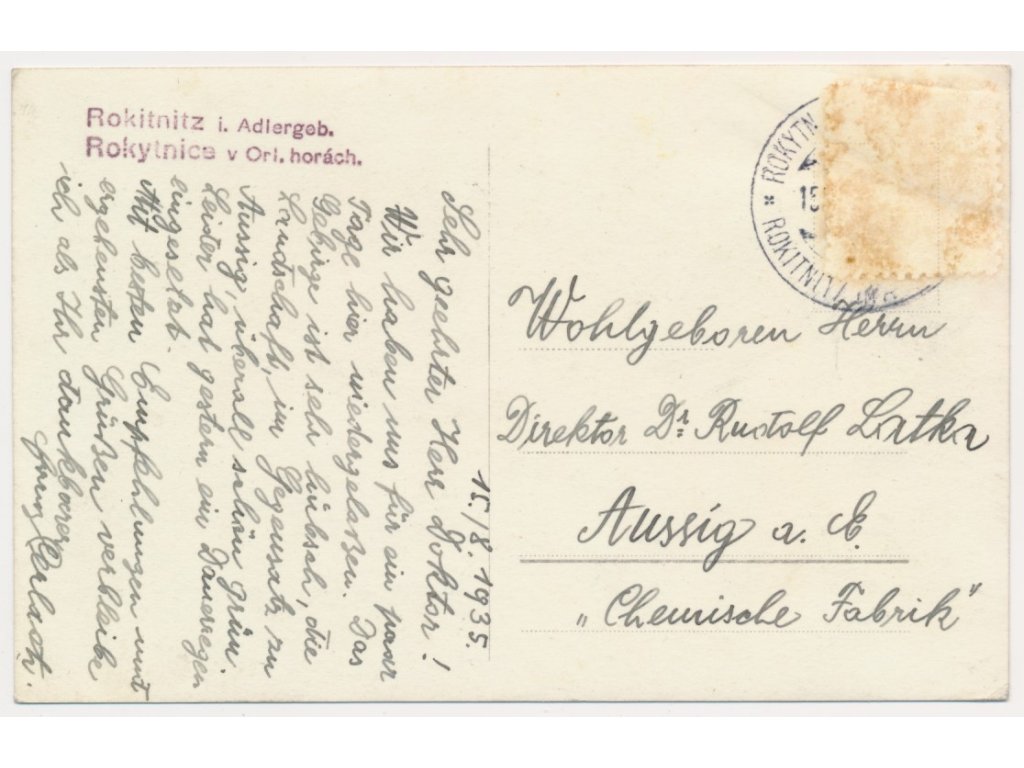 Rokitnitz i. Adlergeb.
Rokytnice v Orl. horách.
ROKYTN
15
ROKITNITZ IM
15./8. 1935.
Sehr geehrter Herr Doktor!
Wir haben uns für ein paar
Tage hier niedergelaßen. Das
Gebirge ist sehr hübsch, die
Landschaft im Gegensatz zu
Aussig, überall schön grün.
Leider hat gestern ein Dauerregen
eingesetzt.
Mit besten Empfehlungen und
ergebensten Grüßen verbleibe
ich als Ihr dankbarer
Gerlach.
Wohlgeboren Herrn
Direktor Dr. Rudolf Latka
Aussig a. E.
"Chemische Fabrik"